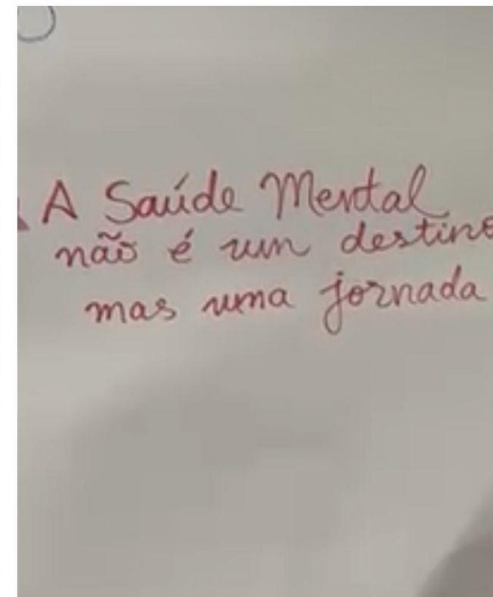 A Saúde Mental
não é um destino
mas uma jornada